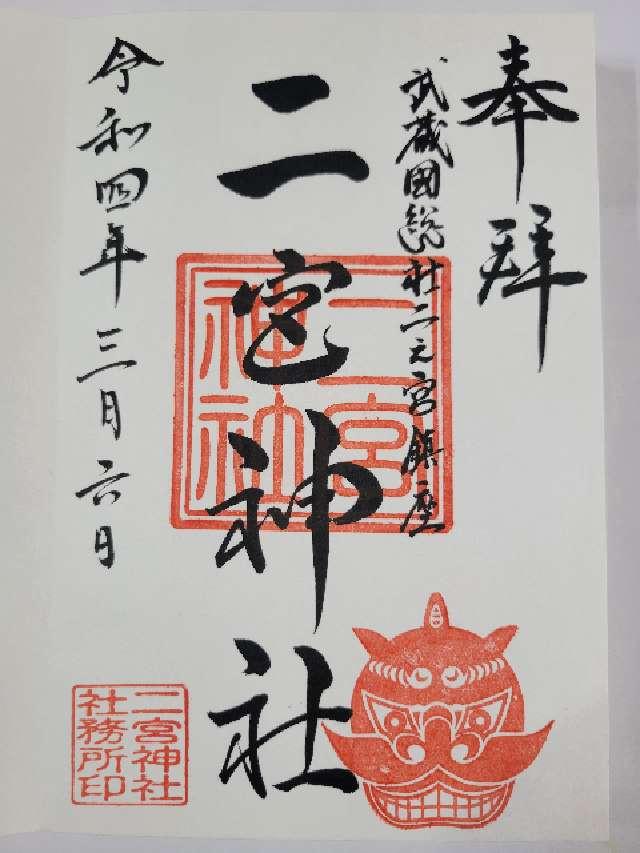 奉拝
武蔵国総社二之宮鎮座
二宮神社
二宮神社
令和四年三月六日
二宮神社
社務所印